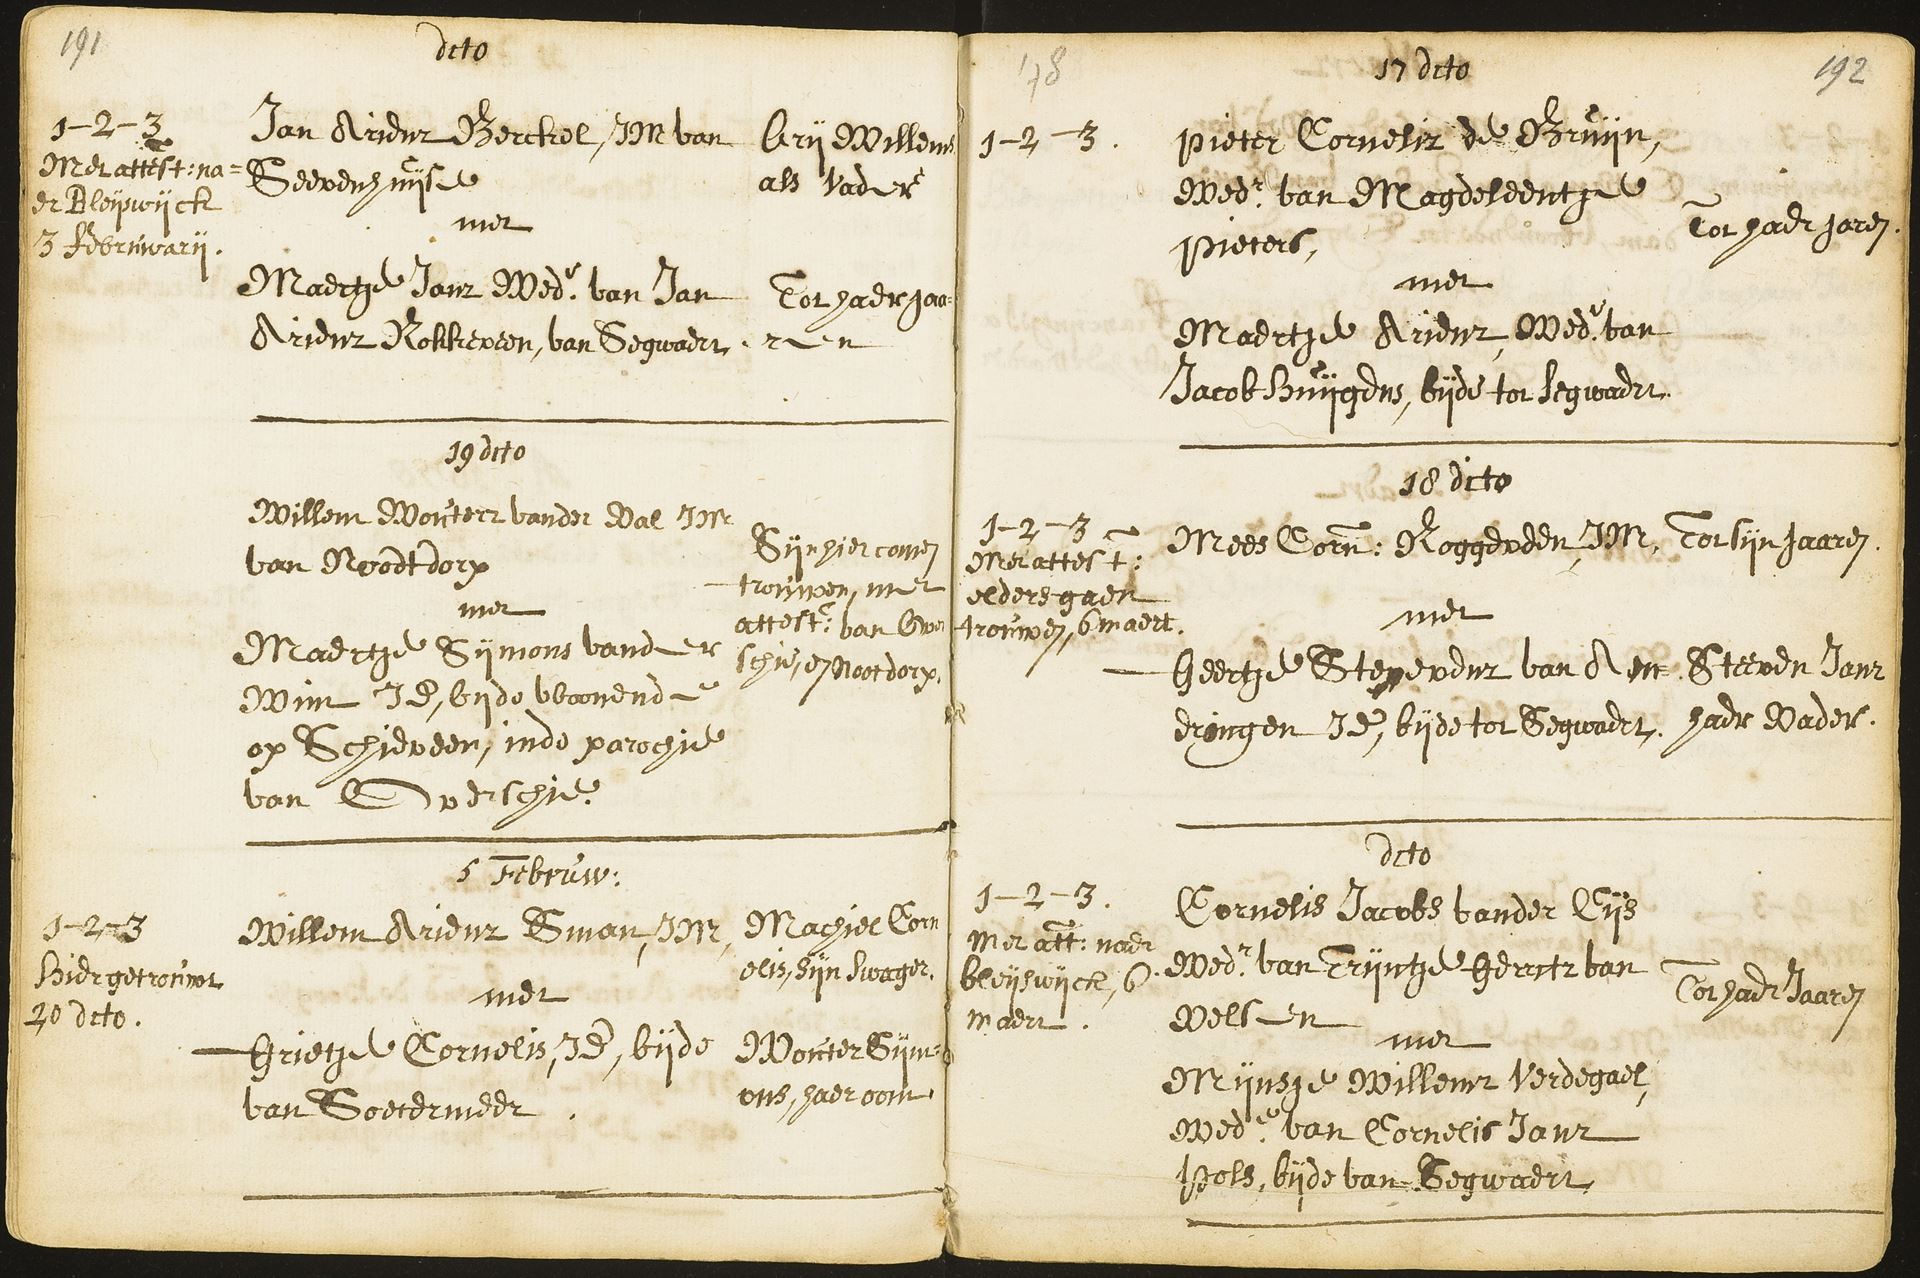 191
dito
1-2-3
Met attest: na=
er Bleijswijck
3 februwarij.
Jan Ariensz Berckel, JM van
Seevenhuijse
met
Maertge Jans Wede. van Jan
Ariensz Rokkeveen, van Segwaert.
Arij Willems
als Vader
Tot haer jaa=
ren
19 dito
Willem Wouters vander Wal JM
van Nootdorp
met
Maertge Sijmons vander
Wint JD, beijde wonende
op Schieveen, inde parochie
van Overschie.
Sijn hier comen
trouwen, met
attest: van Over
schie, en Nootdorp.
5 Februw:
1-2-3
Hier getrouwt
20 dito.
Willem Ariensz Sman, JM,
met
Grietge Cornelis, JD, bijde
van Soetermeer.
Machiel Corn
elis, sijn swager.
Wouter Sijm=
ons, haer oom.
178
17 dito
192
1-2-3.
Pieter Cornelisz de Bruijn,
Wedr. van Magdeleentge
Pieters,
met
Maertge Ariens, Wede. van
Jacob Huijgens, bijde tot segwaert.
Tot haer jaren.
18 dito
1-2-3
Met attest:
elders gaen
trouwen, 6 maert.
Mees Corn: Roggeveen, JM,
met
Geertge Stevens van Aen=
dringen JD, bijde tot Segwaert.
Tot sijn jaaren.
Steeven Jans
haer Vader.
dito
1-2-3.
Met att: naer
bleijswijck, 6
maert.
Cornelis Jacobs vander Eijs
Wedr. van Trijntge Gerrits van
Velsen
met
Mijnsge Willems Verdegael,
Wede. van Cornelis Jans
Pols, bijde van Segwaert.
Tot haer Jaaren